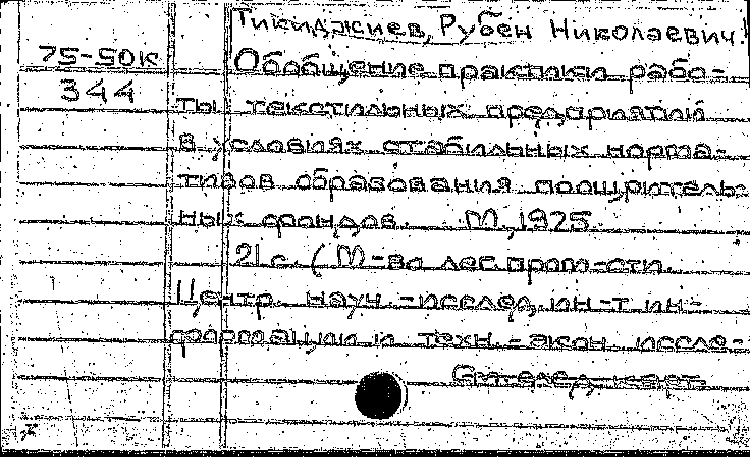 Тикиджиев, Рубен Николаевич.
75-50к
Обобщение практики рабо-
344
ты текстильных предприятий
в условиях стабильных норма-
тивов образования поощритель-
ных фондов. М., 1975.
21 с. (М-во лег. пром-сти.
Центр. науч.-исслед. ин-т ин-
формации и техн.-экон. иссле-
См. след. карт.